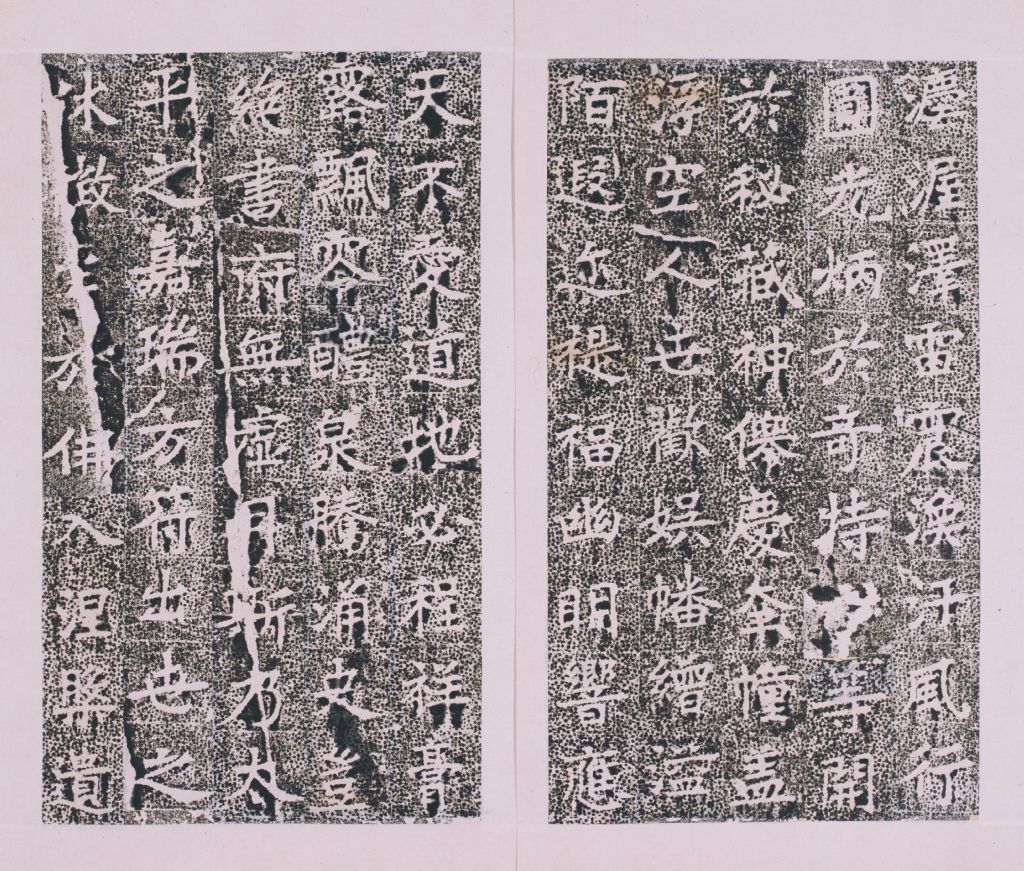 渥澤雷震渙汗風行
圓光炳於奇特等開
於秘藏神僊慶幢蓋
浮空人世歡娛幡繒溢
陌遐迩禔福幽明響應
天不愛道地必程祥膏
露飄零醴泉騰涌史豈
絕書府無虛月斯乃太
平之嘉瑞方符出世之
休徵至於佛入涅槃遺